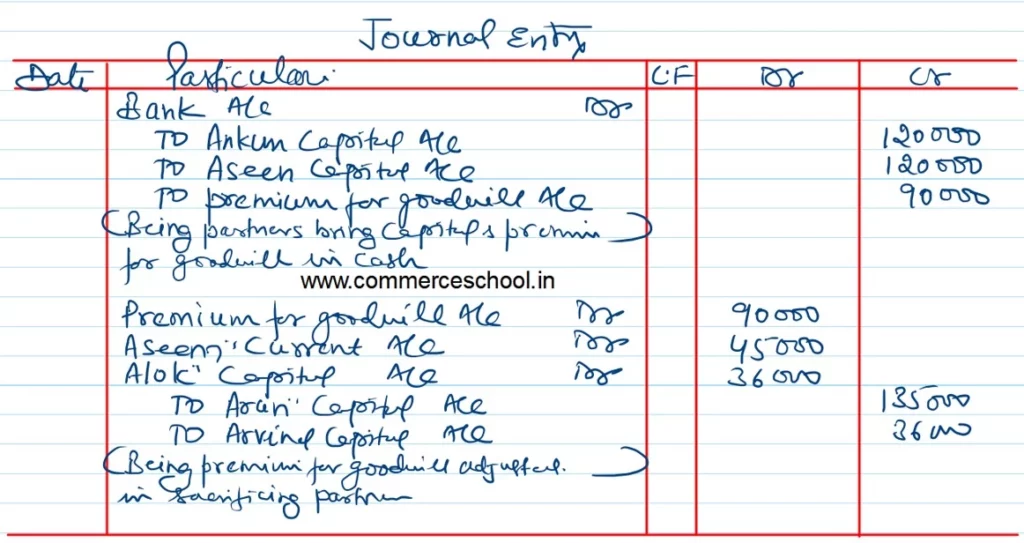 Journal Entry
Date Particular L.F Dr Cr
Bank A/c Dr
TO Ankum Capital A/c 120000
TO Aseem Capital A/c 120000
TO premium for goodwill A/c 90000
(Being partners bring Capital & premium
for goodwill in cash
www.commerceschool.in
Premium for goodwill A/c Dr 90000
Aseem's Current A/c Dr 45000
Alok's Capital A/c Dr 36000
TO Arun's Capital A/c 135000
TO Arvind Capital A/c 36000
(Being premium for goodwill adjusted.
in sacrificing partner